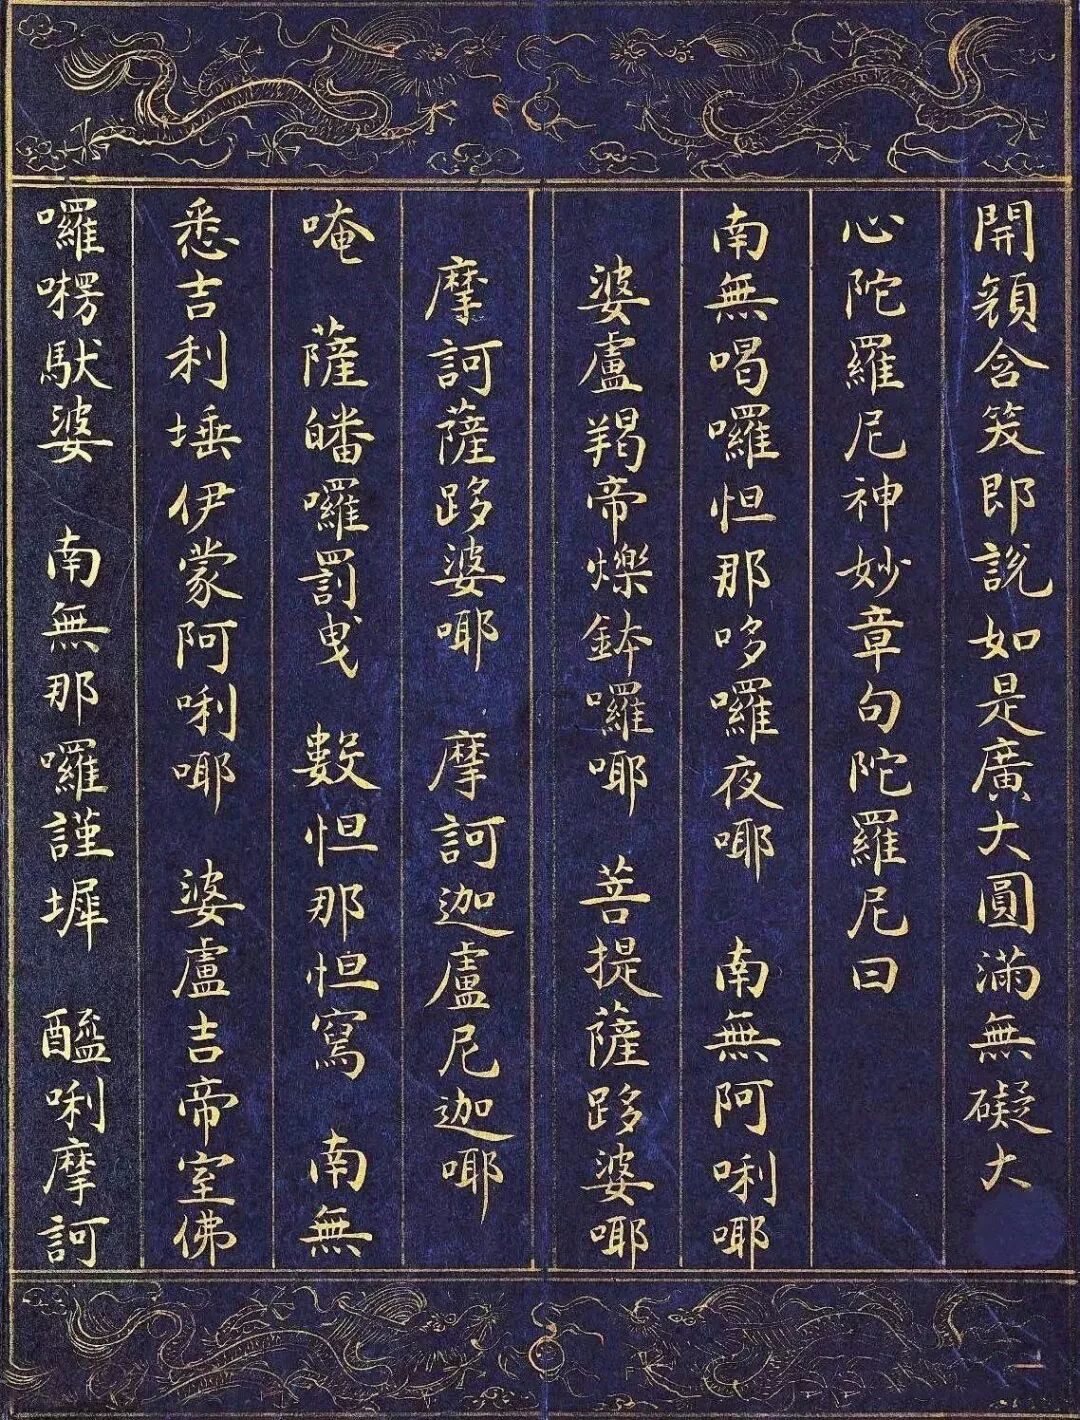 開顏含笑即說如是廣大圓滿無礙大
心陀羅尼神妙章句陀羅尼曰
南無喝囉怛那哆囉夜耶　南無阿唎耶
婆盧羯帝爍鉢囉耶　菩提薩跢婆耶
摩訶薩跢婆耶　摩訶迦盧尼迦耶
唵　薩皤囉罰曳　數怛那怛寫　南無
悉吉利埵伊蒙阿唎耶　婆盧吉帝室佛
囉楞馱婆　南無那囉謹墀　醯唎摩訶